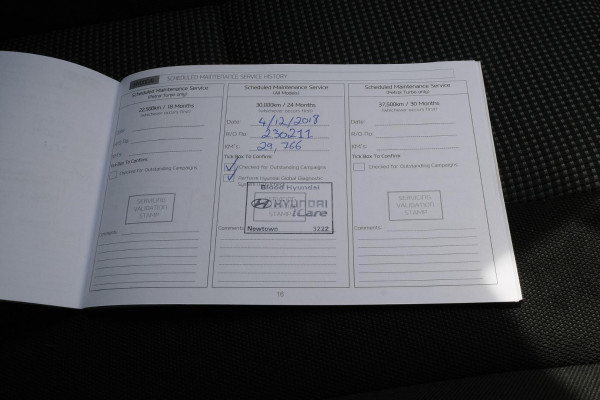 SCHEDULED MAINTENANCE SERVICE HISTORY
Scheduled Maintenance Service
(Petrol Turbo only)
22,500km / 18 Months
(whichever occurs first)
Date:
R/O No:
KM's:
Tick Box To Confirm:
Checked for Outstanding Campaigns
SERVICING
VALIDATION
STAMP
Comments:
Scheduled Maintenance Service
(All Models)
30,000km / 24 Months
(whichever occurs first)
Date: 4/12/2018
R/O No: 230211
KM's: 29,766
Tick Box To Confirm:
Checked for Outstanding Campaigns
Perform Hyundai Global Diagnostic
Blood Hyundai
HYUNDAI
iCare
STAMP
Newtown 3222
Comments:
Scheduled Maintenance Service
(Petrol Turbo only)
37,500km / 30 Months
(whichever occurs first)
Date:
R/O No:
KM's:
Tick Box To Confirm:
Checked for Outstanding Campaigns
SERVICING
VALIDATION
STAMP
Comments:
16